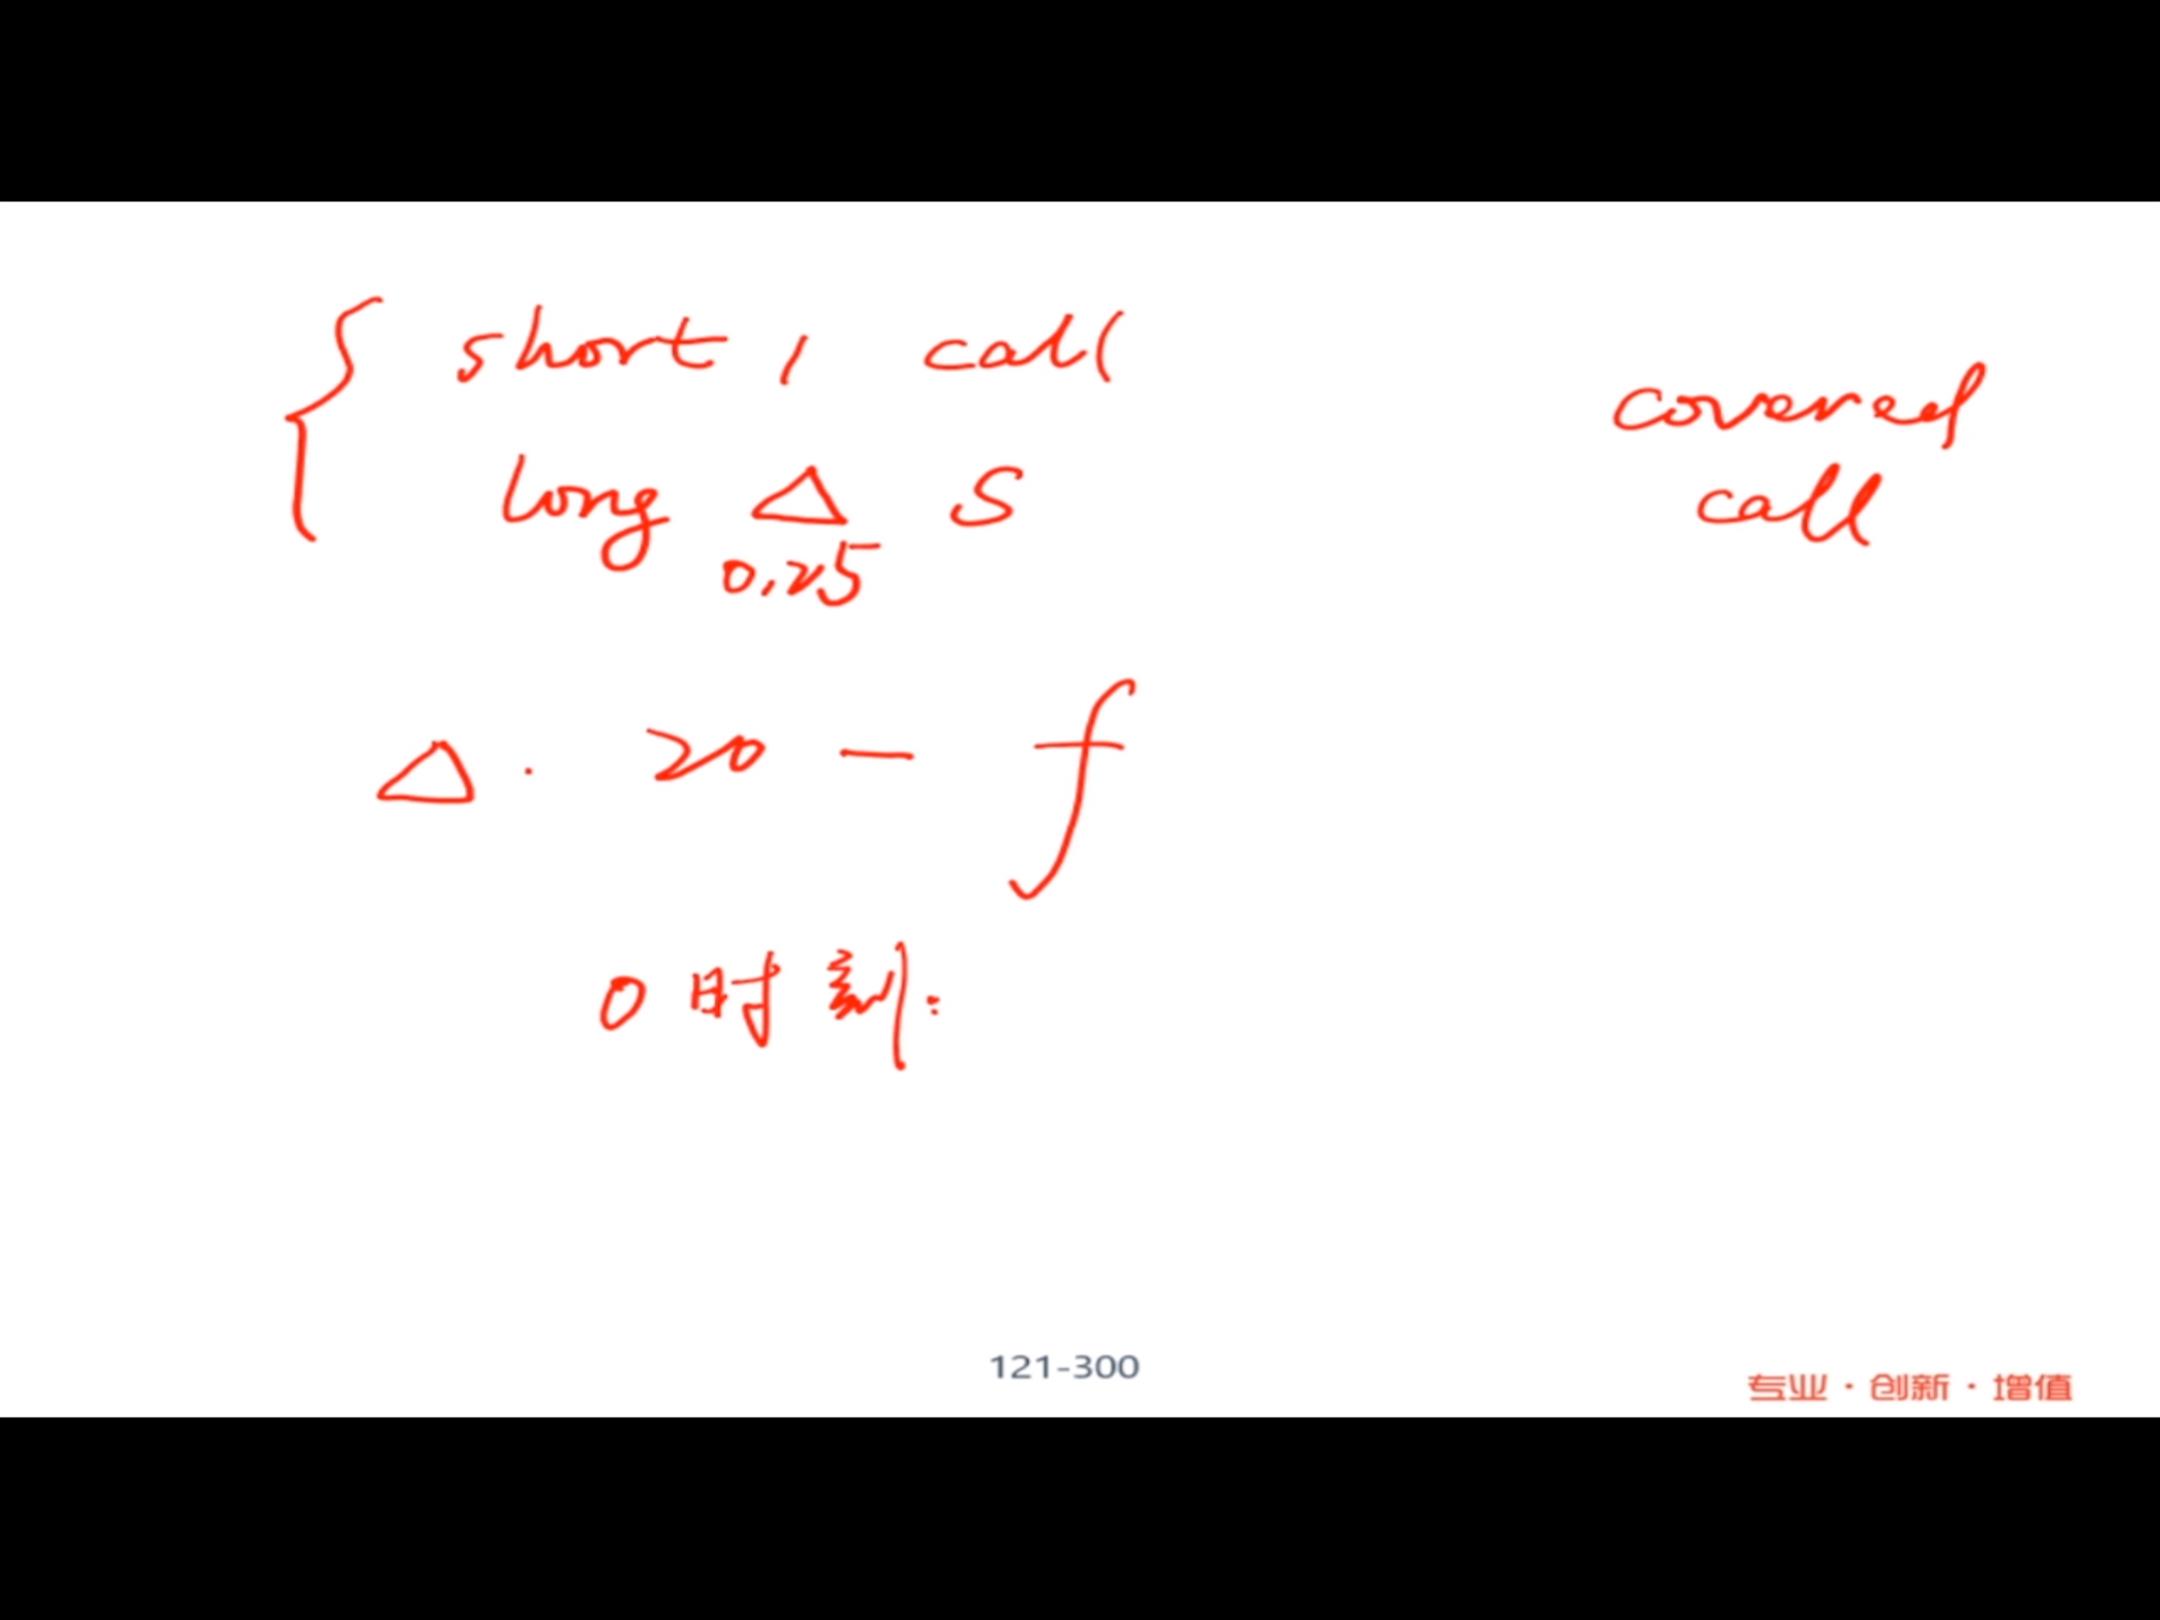 short 1 call
long Δ S
0.25
covered
call
Δ · 20 - f
0时刻:
121-300
专业·创新·增值